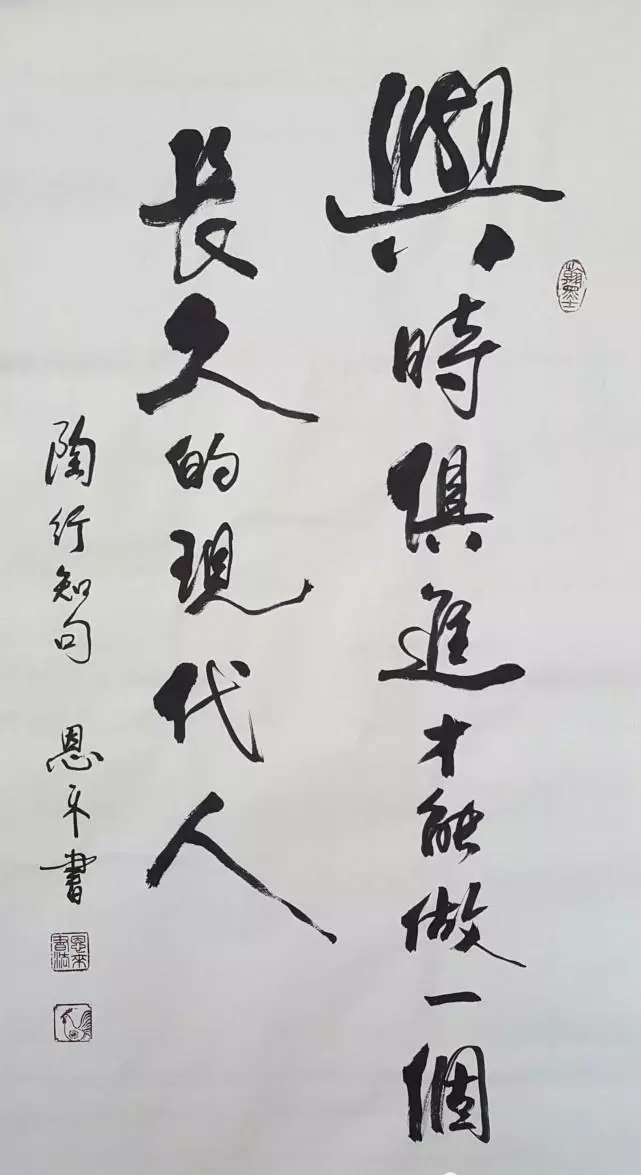 與時俱進才能做一個
長久的現代人
陶行知句 恩来書
恩來書法